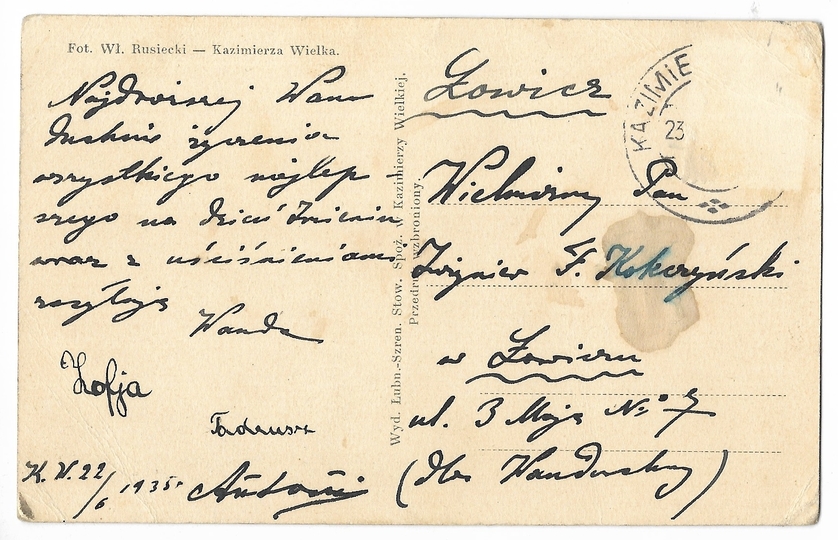 Fot. Wł. Rusiecki — Kazimierza Wielka.
Najdroższej Wan
duchnie życzenia
wszystkiego najlep-
szego na dzień Imienin
wraz z uściśnieniami
zasyłają
Wanda
Zofja
Tadeusz
Antoni
K. W. 22/6 1935 r
Wyd. Lubn.-Szren. Stow. Spoż. w Kazimierzy Wielkiej.
Przedruk wzbroniony.
KAZIMIE
23
Łowicz
Wielmożny Pan
Zbigniew F. Kokczyński
w Łowiczu
ul. 3 Maja No 7
(dla Wanduchny)